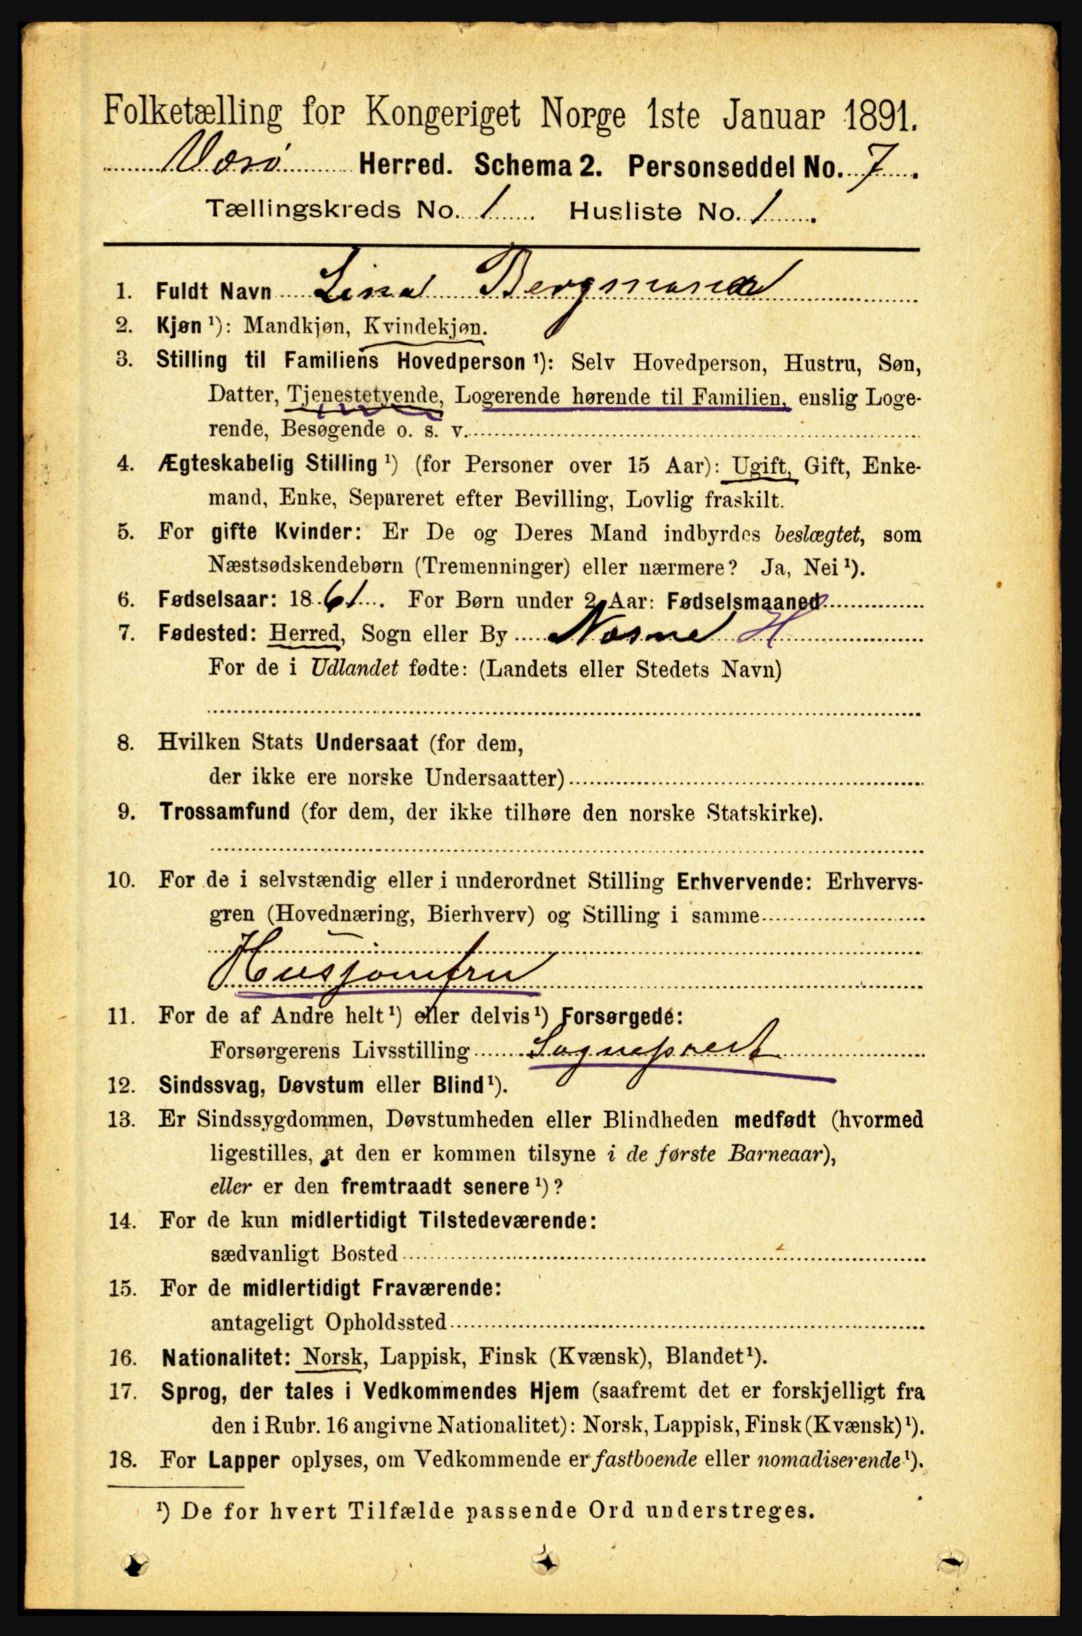 Folketælling for Kongeriget Norge 1ste Januar 1891.
Værø Herred. Schema 2. Personseddel No. 7.
Tællingskreds No. 1. Husliste No. 1.
1. Fuldt Navn Lina Bergmann
2. Kjøn ¹): Mandkjøn, Kvindekjøn.
3. Stilling til Familiens Hovedperson ¹): Selv Hovedperson, Hustru, Søn,
Datter, Tjenestetyende, Logerende hørende til Familien, enslig Loge-
rende, Besøgende o. s. v.
4. Ægteskabelig Stilling ¹) (for Personer over 15 Aar): Ugift, Gift, Enke-
mand, Enke, Separeret efter Bevilling, Lovlig fraskilt.
5. For gifte Kvinder: Er De og Deres Mand indbyrdes beslægtet, som
Næstsødskendebørn (Tremenninger) eller nærmere? Ja, Nei ¹).
6. Fødselsaar: 1861. For Børn under 2 Aar: Fødselsmaaned
7. Fødested: Herred, Sogn eller By Næsne H
For de i Udlandet fødte: (Landets eller Stedets Navn)
8. Hvilken Stats Undersaat (for dem,
der ikke ere norske Undersaatter)
9. Trossamfund (for dem, der ikke tilhøre den norske Statskirke).
10. For de i selvstændig eller i underordnet Stilling Erhvervende: Erhvervs-
gren (Hovednæring, Bierhverv) og Stilling i samme
Husjomfru
11. For de af Andre helt ¹) eller delvis ¹) Forsørgede:
Forsørgerens Livsstilling Sogneprest
12. Sindssvag, Døvstum eller Blind ¹).
13. Er Sindssygdommen, Døvstumheden eller Blindheden medfødt (hvormed
ligestilles, at den er kommen tilsyne i de første Barneaar),
eller er den fremtraadt senere ¹)?
14. For de kun midlertidigt Tilstedeværende:
sædvanligt Bosted
15. For de midlertidigt Fraværende:
antageligt Opholdssted
16. Nationalitet: Norsk, Lappisk, Finsk (Kvænsk), Blandet ¹).
17. Sprog, der tales i Vedkommendes Hjem (saafremt det er forskjelligt fra
den i Rubr. 16 angivne Nationalitet): Norsk, Lappisk, Finsk (Kvænsk) ¹).
18. For Lapper oplyses, om Vedkommende er fastboende eller nomadiserende ¹).
¹) De for hvert Tilfælde passende Ord understreges.